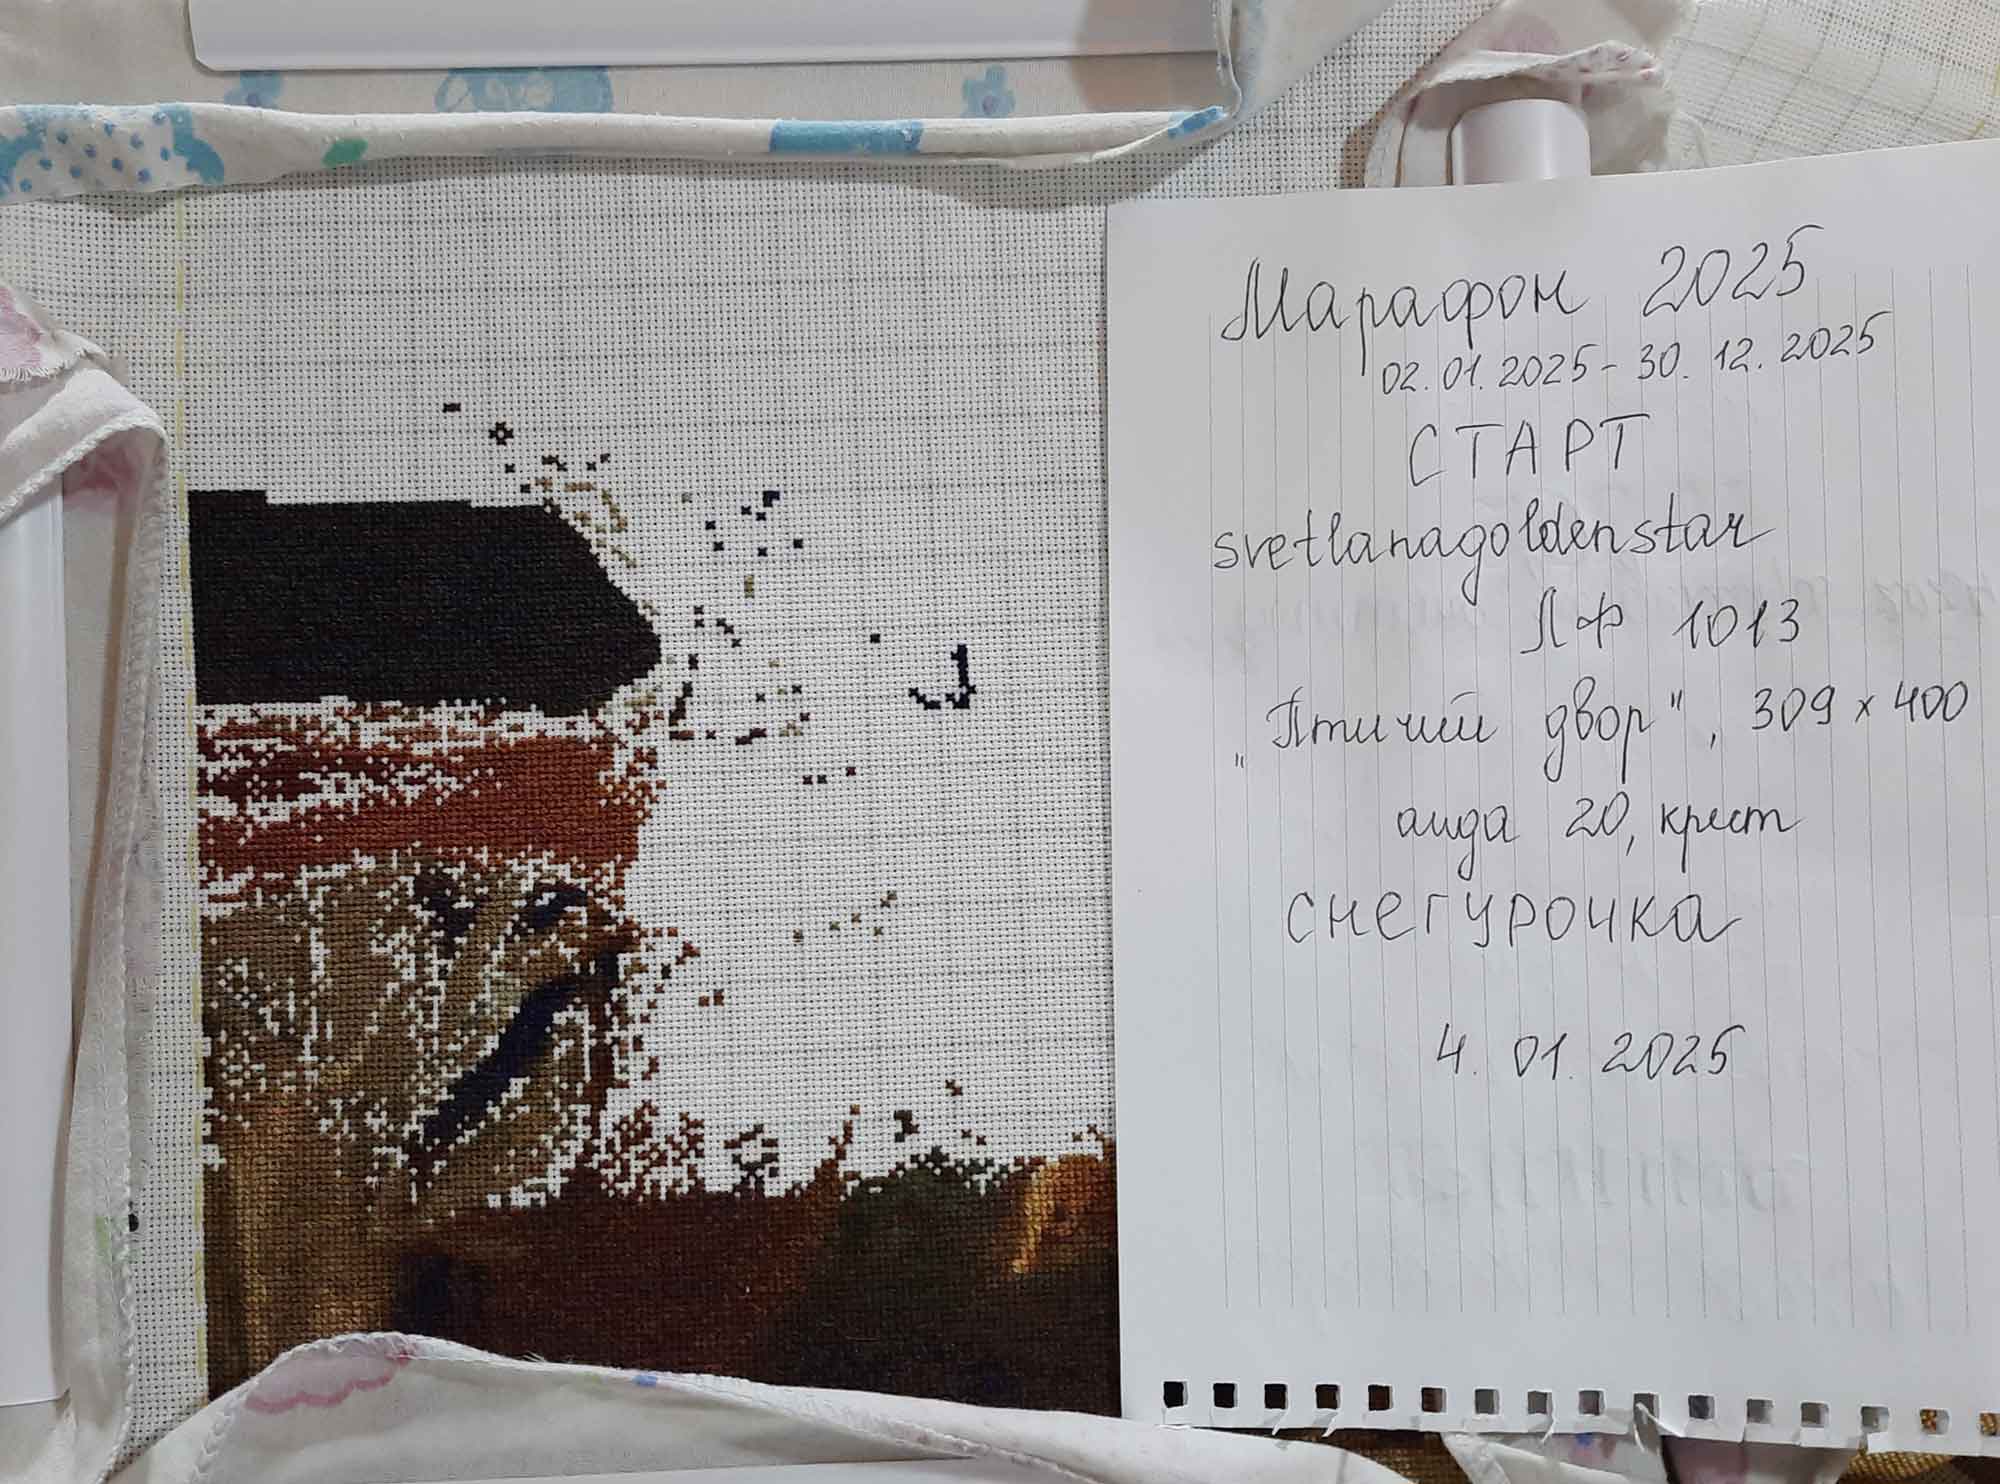 Марафон 2025
02.01.2025 - 30.12.2025
СТАРТ
svetlanagoldenstar
ЛФ 1013
„Птичий двор", 309 х 400
аида 20, крест
СНЕГУРОЧКА
4. 01. 2025